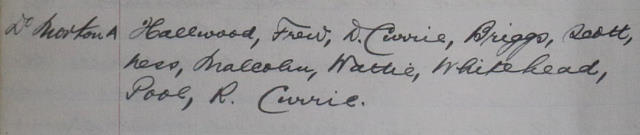 Dr Morton A Hallwood, Frew, D. Currie, Briggs, Scott,
Ness, Malcolm, Wattie, Whitehead,
Pool, R. Currie.